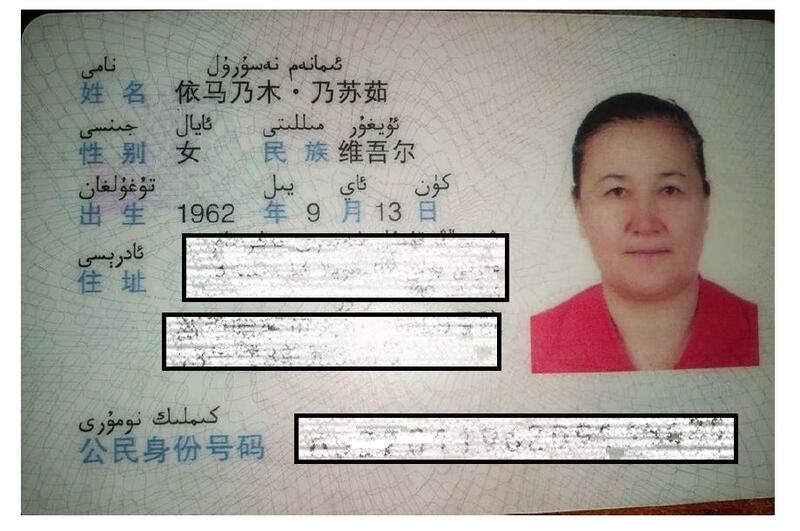 نامى ئىمانەم نەسۇرۇل
姓名 依马乃木·乃苏茹
جىنسى ئايال مىللىتى ئۇيغۇر
性别 女 民族 维吾尔
تۇغۇلغان يىل ئاي كۈن
出生 1962 年 9 月 13 日
ئادرېسى
住址
كىملىك نومۇرى
公民身份号码